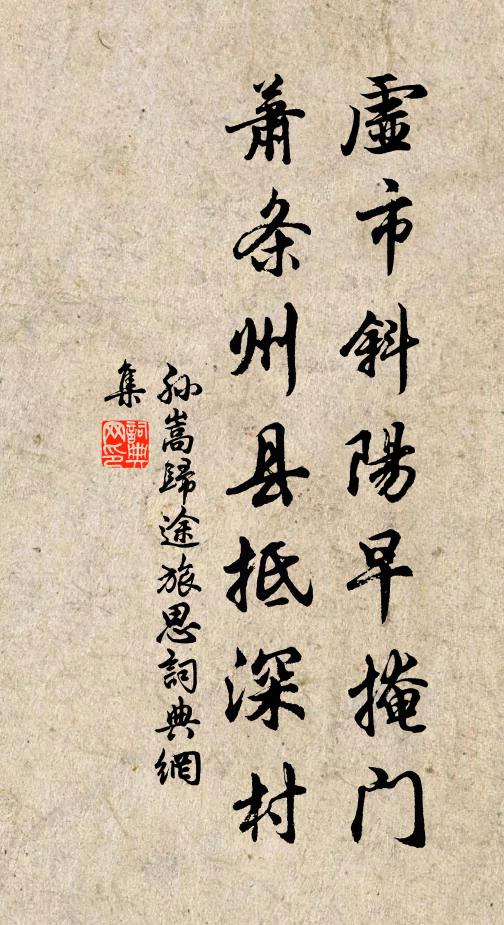 虛市斜陽早掩门
萧条州县抵深村
孙嵩歸途旅思詞典網
集
詞典网印